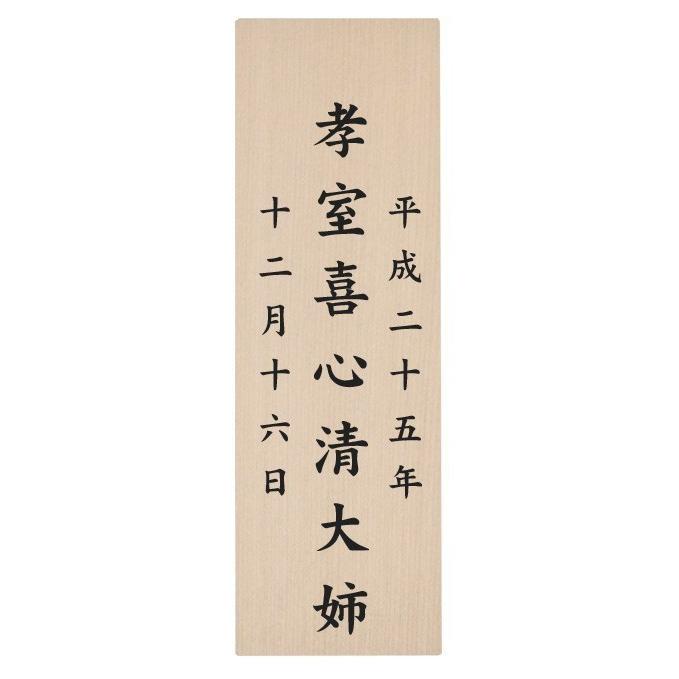 平成二十五年
孝室喜心清大姉
十二月十六日